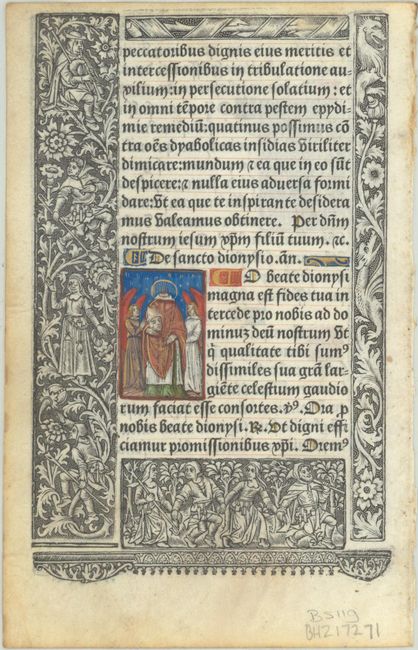 peccatoribus dignis eius meritis et
intercessionibus in tribulatione au-
xilium: in persecutione solatium: et
in omni tēpore contra pestem epydi-
mie remediū: quatinus possimus cō
tra oēs dyabolicas insidias viriliter
dimicare: mundum ⁊ ea que in eo sūt
despicere: ⁊ nulla eius adversa formi
dare: Ut ea que te inspirante desidera
mus valeamus obtinere. Per dn̄m
nostrum iesum xp̄m filiū tuum. ⁊c.
De sancto dionysio. añ.
O beate dionysi
magna est fides tua in
tercede pro nobis ad do
minuz deū nostrum ut
q̄ qualitate tibi sumꝰ
dissimiles sua gr̄a lar-
giēte celestium gaudio
rum faciat esse consortes. v̄ꝰ. Ora p̄
nobis beate dionysi. R̄. Ut digni effi
ciamur promissionibus xp̄i. Oremꝰ
BS119
BH217271